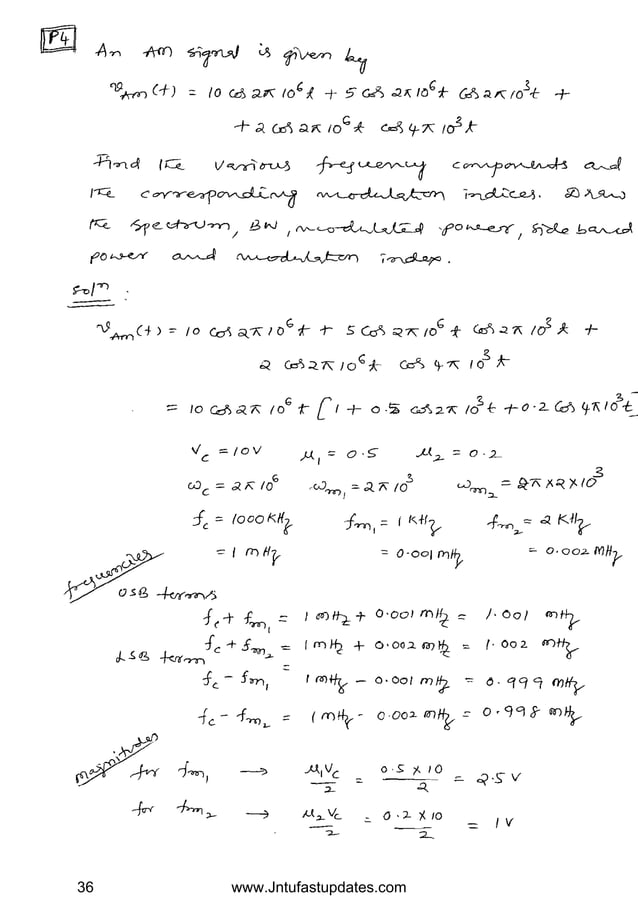 P4
An AM signal is given by
v_AM(t) = 10 cos 2π 10⁶ t + 5 cos 2π 10⁶ t cos 2π 10³ t +
+ 2 cos 2π 10⁶ t cos 4π 10³ t
Find the various frequency components and
the corresponding modulaton indices. Draw
the spectrum, BW, modulated power, side band
power and modulaton index.
Solⁿ :
v_AM(t) = 10 cos 2π 10⁶ t + 5 cos 2π 10⁶ t cos 2π 10³ t +
2 cos 2π 10⁶ t cos 4π 10³ t
= 10 cos 2π 10⁶ t [1 + 0.5 cos 2π 10³ t + 0.2 cos 4π 10³ t]
V_c = 10V μ₁ = 0.5 μ₂ = 0.2
ω_c = 2π 10⁶ ω_m₁ = 2π 10³ ω_m₂ = 2π × 2 × 10³
f_c = 1000 KHz f_m₁ = 1 KHz f_m₂ = 2 KHz
= 1 MHz = 0.001 MHz = 0.002 MHz
frequencies
USB terms
f_c + f_m₁ = 1 MHz + 0.001 MHz = 1.001 MHz
f_c + f_m₂ = 1 MHz + 0.002 MHz = 1.002 MHz
LSB term =
f_c - f_m₁ 1 MHz - 0.001 MHz = 0.999 MHz
f_c - f_m₂ = 1 MHz - 0.002 MHz = 0.998 MHz
magnitudes
for f_m₁ → μ₁V_c/2 = 0.5 × 10/2 = 2.5 V
for f_m₂ → μ₂V_c/2 = 0.2 × 10/2 = 1 V
36 www.Jntufastupdates.com